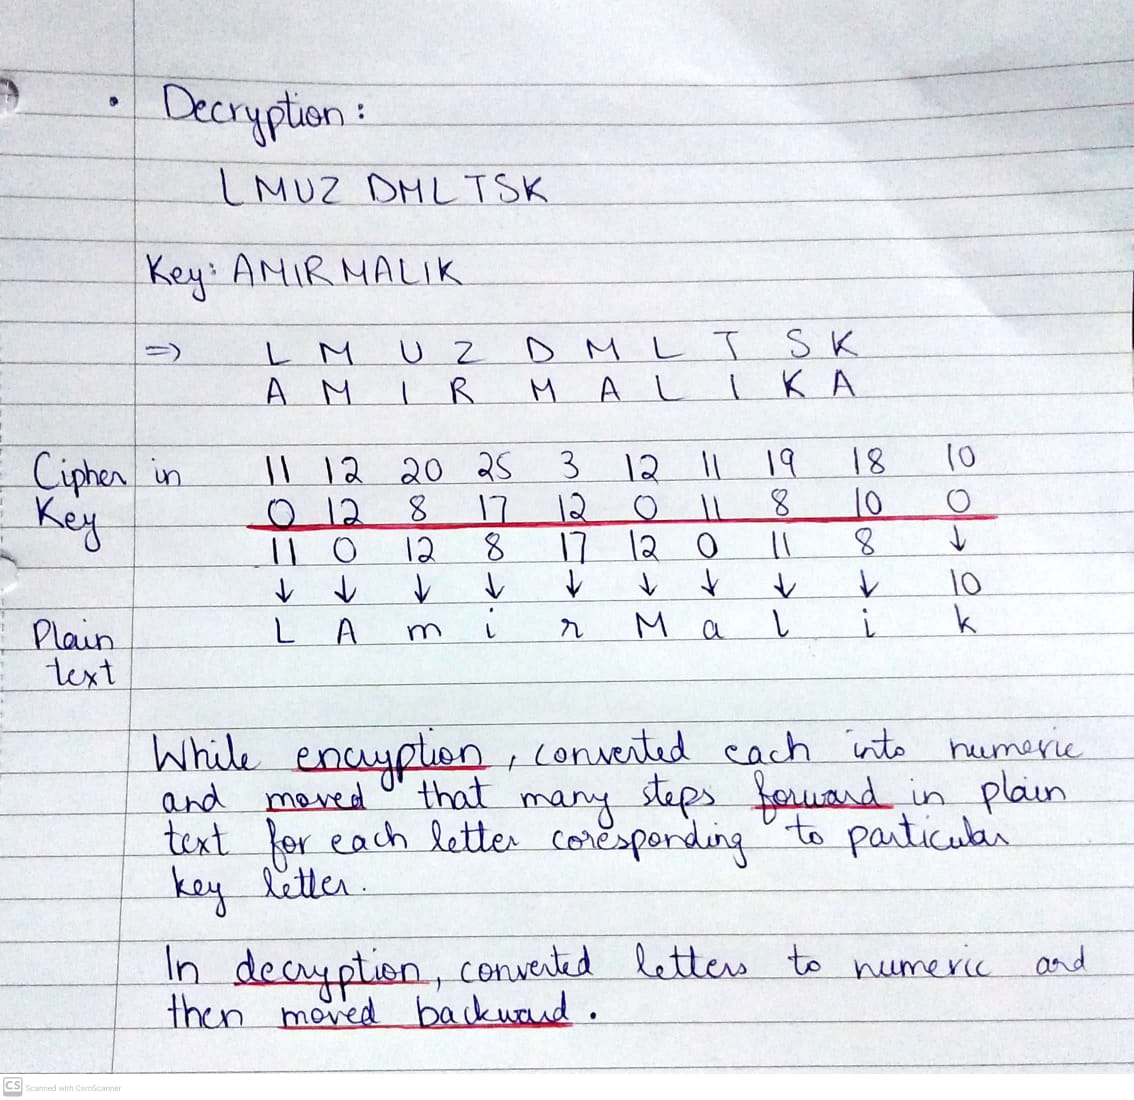 • Decryption:
LMUZ DMLTSK
Key: AMIR MALIK
⇒ L M U Z D M L T S K
A M I R M A L I K A
Cipher in 11 12 20 25 3 12 11 19 18 10
Key 0 12 8 17 12 0 11 8 10 0
11 0 12 8 17 12 0 11 8 ↓
↓ ↓ ↓ ↓ ↓ ↓ ↓ ↓ ↓ 10
Plain L A m i r M a l i k
text
While encryption, converted each into numeric
and moved that many steps forward in plain
text for each letter coresponding to particular
key letter.
In decryption, converted letters to numeric and
then moved backward.
CS Scanned with CamScanner